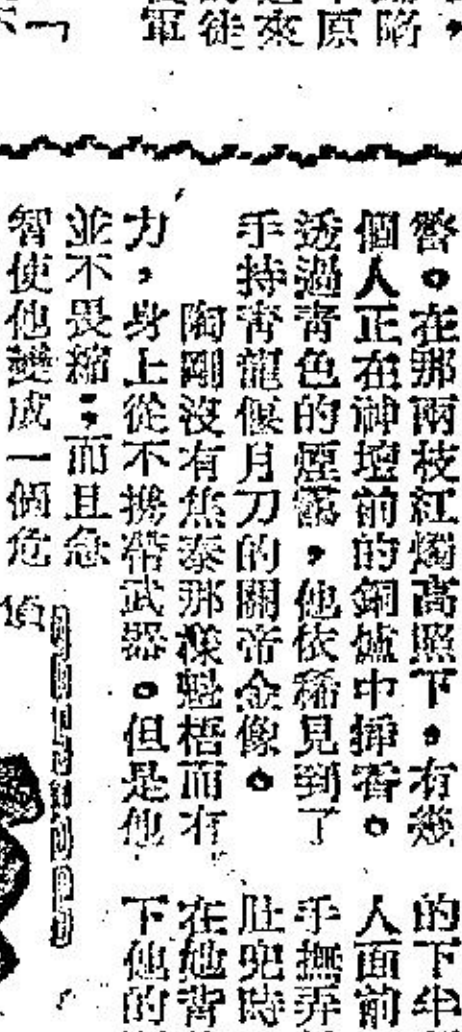 軍徒來原陷
警。在那兩枝紅燭高照下,有幾
個人正在神壇前的銅爐中揷香。
透過青色的煙霧,他依稀見到了
手持青龍偃月刀的關帝金像。
陶剛沒有焦泰那樣魁梧而有
力,身上從不携帶武器。但是他
並不畏縮;而且急
智使他變成一個危
的下半
人面前
手撫弄
肚兜時
在他背
下他的